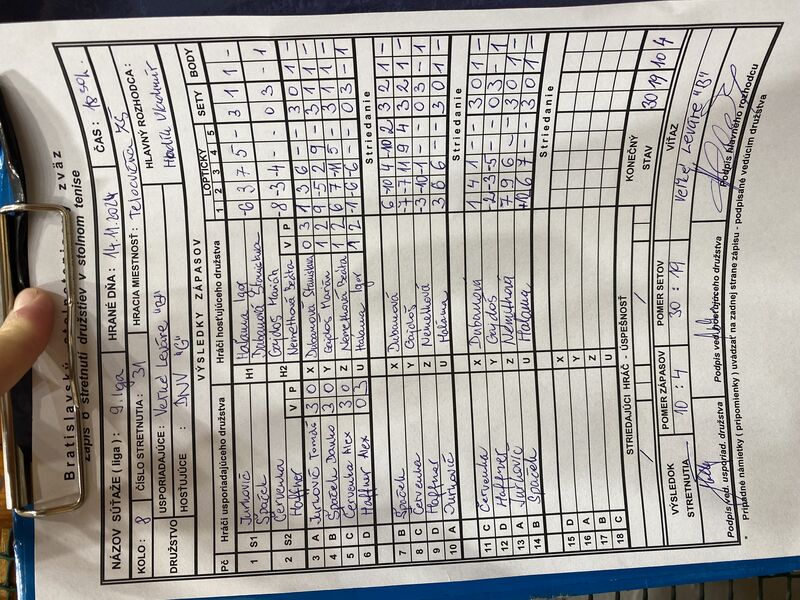 Bratislavský stolnotenisový zväz
Zápis o stretnutí družstiev v stolnom tenise
NÁZOV SÚŤAŽE ( liga ) : 9. liga HRANÉ DŇA : 14.11.2024 ČAS : 18 30 h.
KOLO : 8 ČÍSLO STRETNUTIA : 31 HRACIA MIESTNOSŤ : Telocvičňa ZŠ
DRUŽSTVO USPORIADAJÚCE : Veľké Leváre "B" HLAVNÝ ROZHODCA :
HOSŤUJÚCE : DNV "G" Hladík Vladimír
VÝSLEDKY ZÁPASOV
Pč Hráči usporiadajúceho družstva Hráči hosťujúceho družstva LOPTIČKY SETY BODY
1 2 3 4 5
1 S1 Jurkovič H1 Halama Igor -6 3 7 5 - 3 1 1 -
Špaček Dubanová Stanislava
2 S2 Červenka H2 Gajdoš Marián -8 -3 -4 - 0 3 - 1
Haffner V P V P Nemethová Beáta
3 A Jurkovič Tomáš 3 0 X Dubanová Stanislava 0 3 1 3 6 - - 3 0 1 -
4 B Špaček Danko 3 0 Y Gajdoš Marián 1 2 9 -5 2 9 - 3 1 1 -
5 C Červenka Alex 3 0 Z Nemethová Beáta 1 2 6 7 -11 5 - 3 1 1 -
6 D Haffner Alex 0 3 U Halama Igor 1 2 -1 -6 -6 - 0 3 - 1
Striedanie
7 B Špaček X Dubanová 6 -10 4 -10 2 3 2 1 -
8 C Červenka Y Gajdoš -7 -7 11 9 4 3 2 1 -
9 D Haffner Z Nemethová -3 -10 -1 - 0 3 - 1
10 A Jurkovič U Halama 3 6 6 - 3 0 1 -
Striedanie
11 C Červenka X Dubanová 1 4 1 - 3 0 1 -
12 D Haffner Y Gajdoš -2 -3 -5 - 0 3 - 1
13 A Jurkovič Z Nemethová 7 9 6 - 3 0 1 -
14 B Špaček U Halama 6 7 - 3 0 1 -
Striedanie
15 D X
16 A Y
17 B Z
18 C U
STRIEDAJÚCI HRÁČ - ÚSPEŠNOSŤ KONEČNÝ STAV 30 19 10 4
VÝSLEDOK STRETNUTIA POMER ZÁPASOV 10 : 4 POMER SETOV 30 : 19 VÍŤAZ Veľké Leváre "B"
Podpis ved. usporiad. družstva Podpis ved. hosťujúceho družstva Podpis hlavného rozhodcu
* Prípadné námietky ( pripomienky ) uvádzať na zadnej strane zápisu - podpísané vedúcim družstva